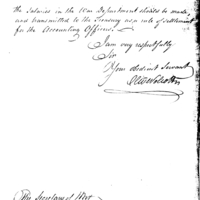 The Salaries in the War Department should be made,
and transmitted to the Treasury as a rule of settlement
for the Accounting Officers.
I am very respectfully
Sir
Your obedient Servant
The Secretary of War